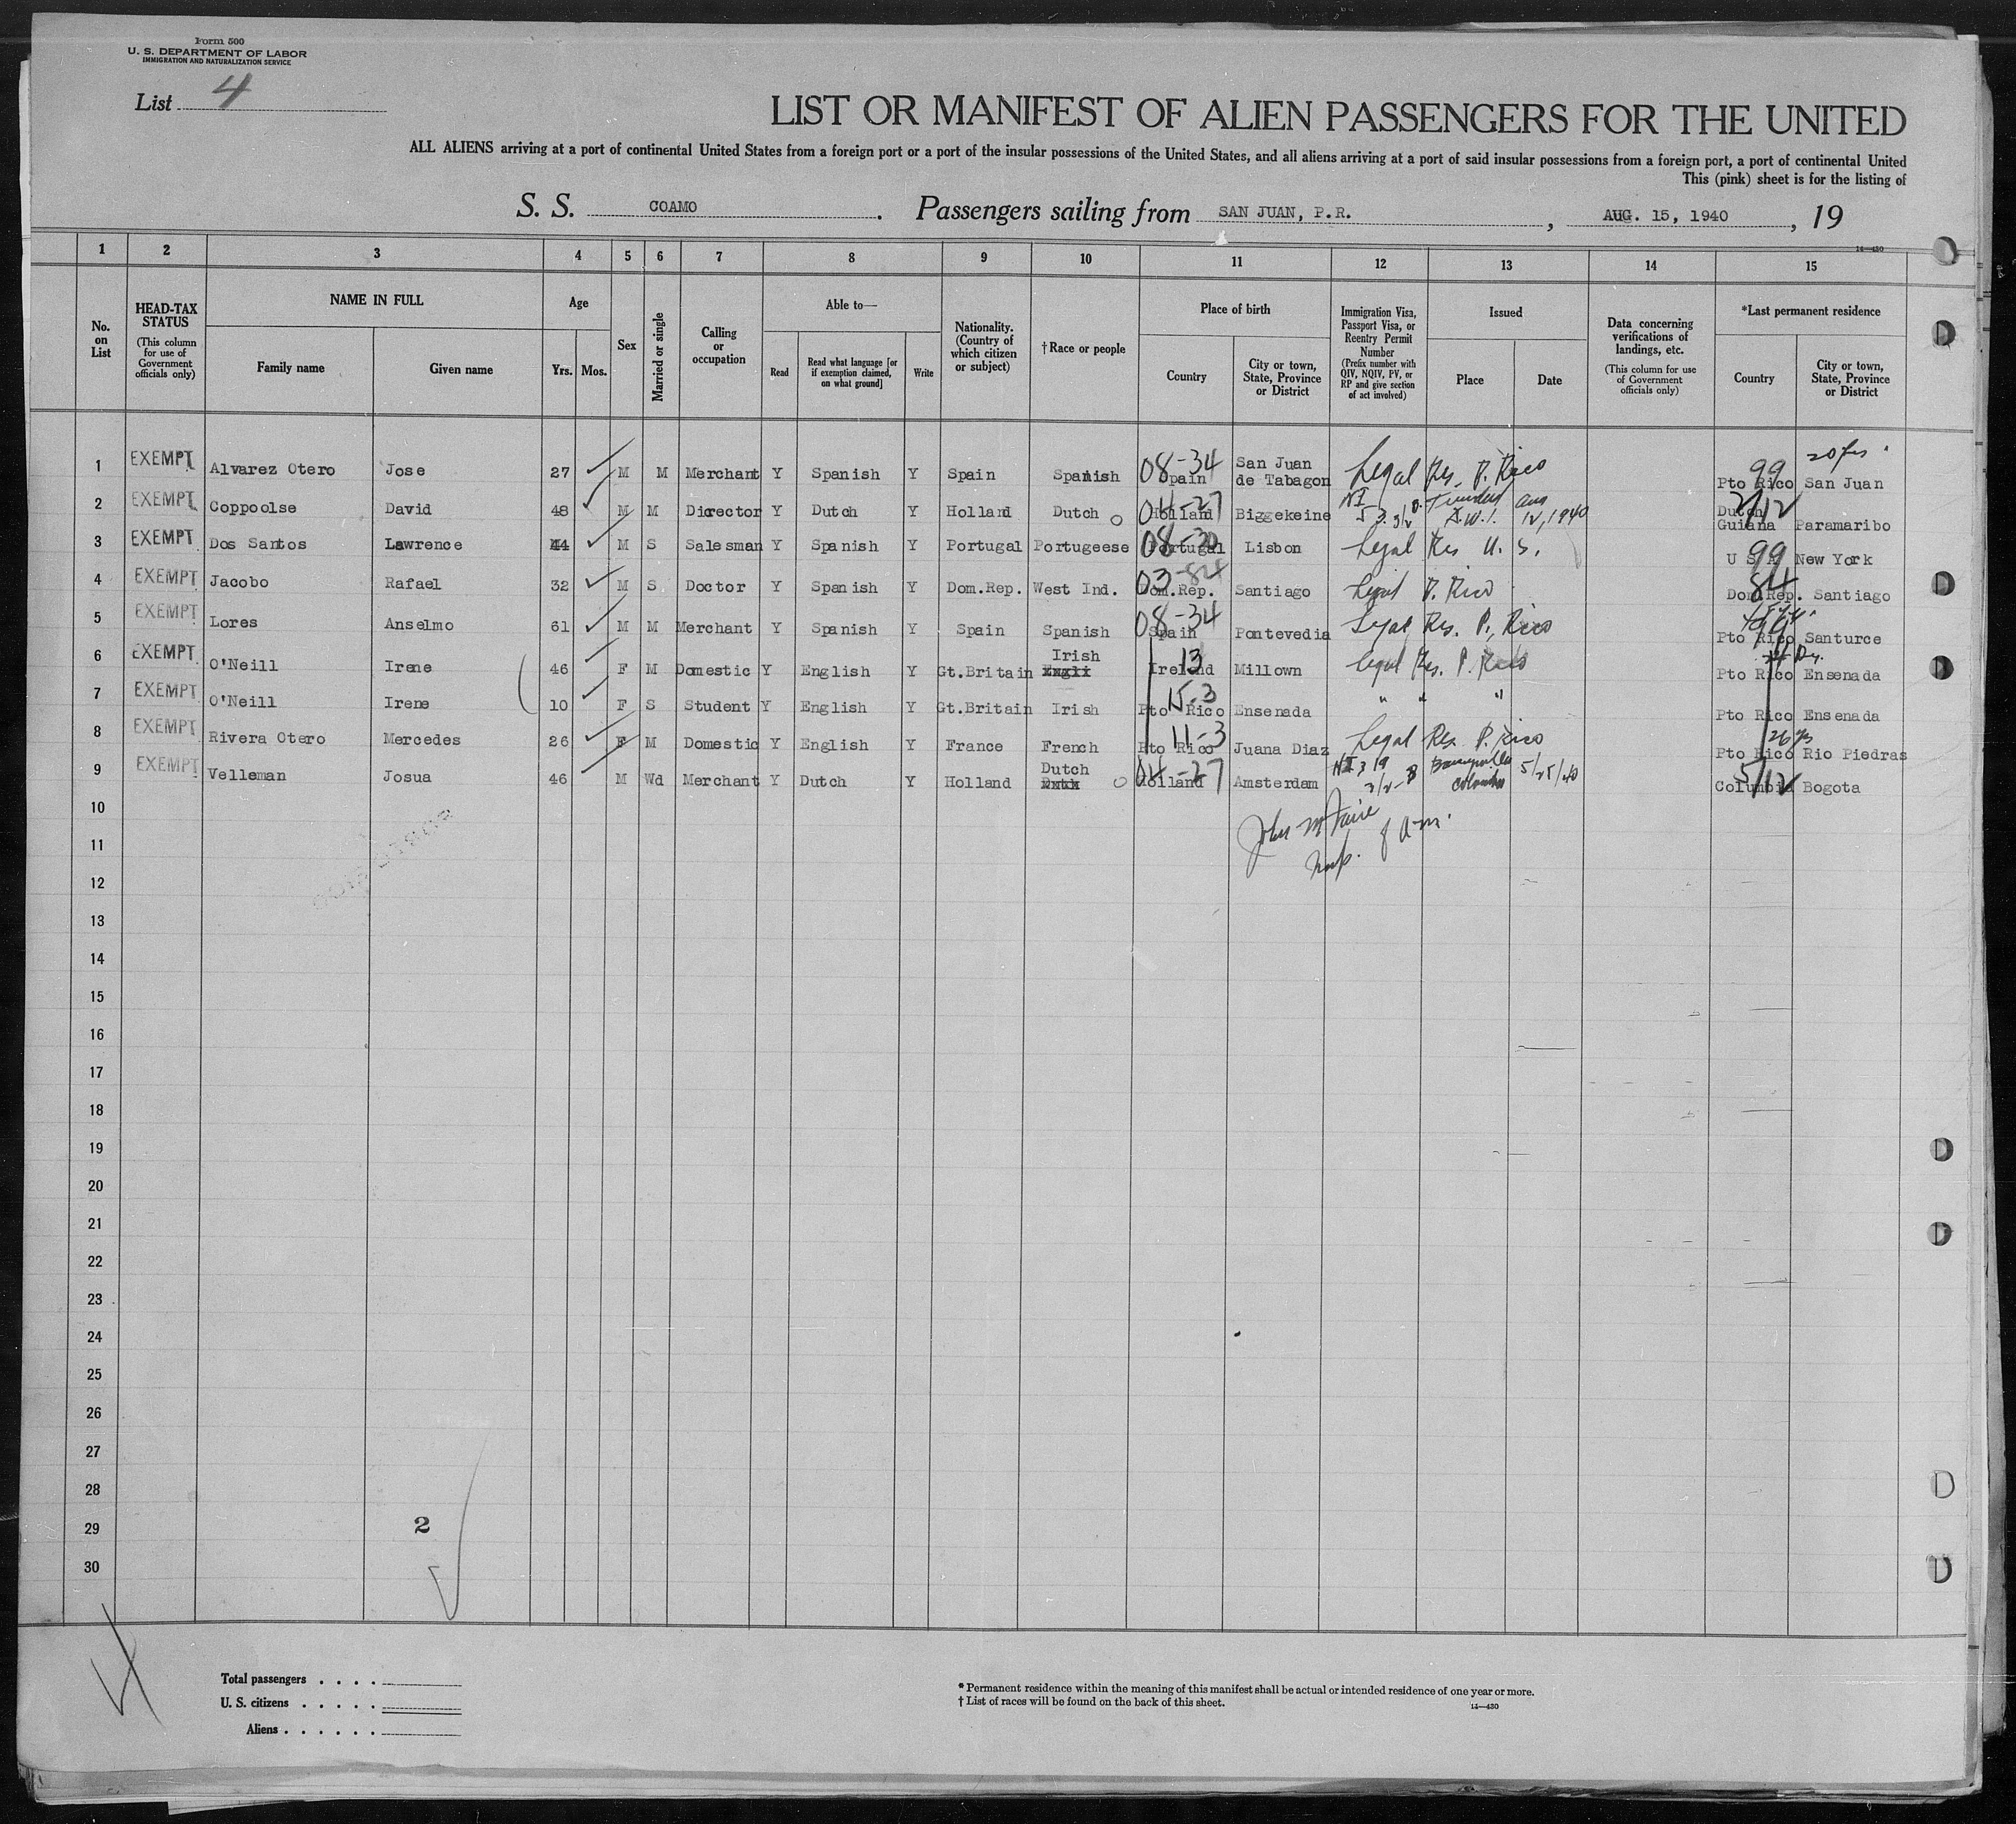 Form 500
U. S. DEPARTMENT OF LABOR
IMMIGRATION AND NATURALIZATION SERVICE
List 4
LIST OR MANIFEST OF ALIEN PASSENGERS FOR THE UNITED
ALL ALIENS arriving at a port of continental United States from a foreign port or a port of the insular possessions of the United States, and all aliens arriving at a port of said insular possessions from a foreign port, a port of continental United
This (pink) sheet is for the listing of
S. S. COAMO. Passengers sailing from SAN JUAN, P.R., AUG. 15, 1940, 19
14—430
1 2 3 4 5 6 7 8 9 10 11 12 13 14 15
No. on List
HEAD-TAX STATUS
(This column for use of Government officials only)
NAME IN FULL
Family name
Given name
Age
Yrs.
Mos.
Sex
Married or single
Calling or occupation
Able to—
Read
Read what language [or if exemption claimed, on what ground]
Write
Nationality. (Country of which citizen or subject)
†Race or people
Place of birth
Country
City or town, State, Province or District
Immigration Visa, Passport Visa, or Reentry Permit Number
(Prefix number with QIV, NQIV, PV, or RP and give section of act involved)
Issued
Place
Date
Data concerning verifications of landings, etc.
(This column for use of Government officials only)
*Last permanent residence
Country
City or town, State, Province or District
1 EXEMPT Alvarez Otero Jose 27 M M Merchant Y Spanish Y Spain Spanish 08-34 Spain San Juan de Tabagon Legal Res. P. Rico 99 Pto Rico 20 yrs. San Juan
2 EXEMPT Coppoolse David 48 M M Director Y Dutch Y Holland Dutch O 04-27 Holland Biggekeine NI 53 3/2 B. Trinidad B.W.I. Aug 12, 1940 Dutch Guiana 2/12 Paramaribo
3 EXEMPT Dos Santos Lawrence 44 M S Salesman Y Spanish Y Portugal Portugeese 08-30 Portugal Lisbon Legal Res U. S. 99 U S A New York
4 EXEMPT Jacobo Rafael 32 M S Doctor Y Spanish Y Dom.Rep. West Ind. 03-84 Dom.Rep. Santiago Legal P. Rico 84 Dom.Rep. Santiago
5 EXEMPT Lores Anselmo 61 M M Merchant Y Spanish Y Spain Spanish 08-34 Spain Pontevedia Legal Res. P. Rico Pto Rico Santurce
6 EXEMPT O'Neill Irene 46 F M Domestic Y English Y Gt.Britain Irish 13 Ireland Millown Legal Res. P. Rico Pto Rico Ensenada
7 EXEMPT O'Neill Irene 10 F S Student Y English Y Gt.Britain Irish 15-3 Pto Rico Ensenada " " " Pto Rico Ensenada
8 EXEMPT Rivera Otero Mercedes 26 F M Domestic Y English Y France French 11-3 Pto Rico Juana Diaz Legal Res. P. Rico 26 yrs Pto Rico Rio Piedras
9 EXEMPT Velleman Josua 46 M Wd Merchant Y Dutch Y Holland Dutch O 04-27 Holland Amsterdam NI 319 3/2-B Colombia 5/25/40 5/12 Columbia Bogota
10
11
12
13
14
15
16
17
18
19
20
21
22
23
24
25
26
27
28
29 2
30
Total passengers
U. S. citizens
Aliens
* Permanent residence within the meaning of this manifest shall be actual or intended residence of one year or more.
† List of races will be found on the back of this sheet.
14—430